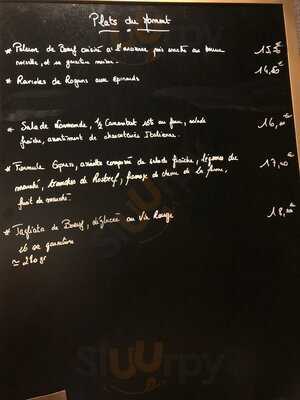 Plats du moment
* Paleron de Boeuf cuisiné à l'ancienne puis snacké au beurre 15,50€
noisette, et sa garniture maison.
* Ravioles de Royans aux épinards 14,50€
* Salade Normande, 1/2 Camembert rôti au four, salade 16,00€
fraîche, assortiment de charcuterie Italienne.
* Formule Express, assiette composée de salade fraîche, légumes du 17,00€
marché, tranches de Rosbeef, fromage de chèvre de la ferme,
fruit de marché.
* Tagliata de Boeuf, déglacée au Vin Rouge 18,00€
et sa garniture
≃ 210 gr
sluurpy
sluurpy